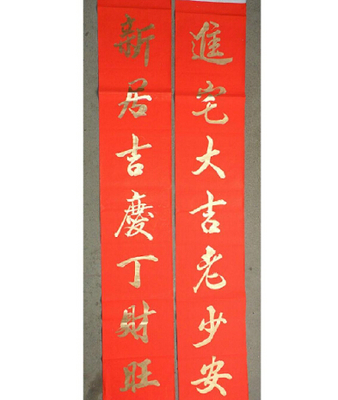 進宅大吉老少安
新居吉慶丁財旺